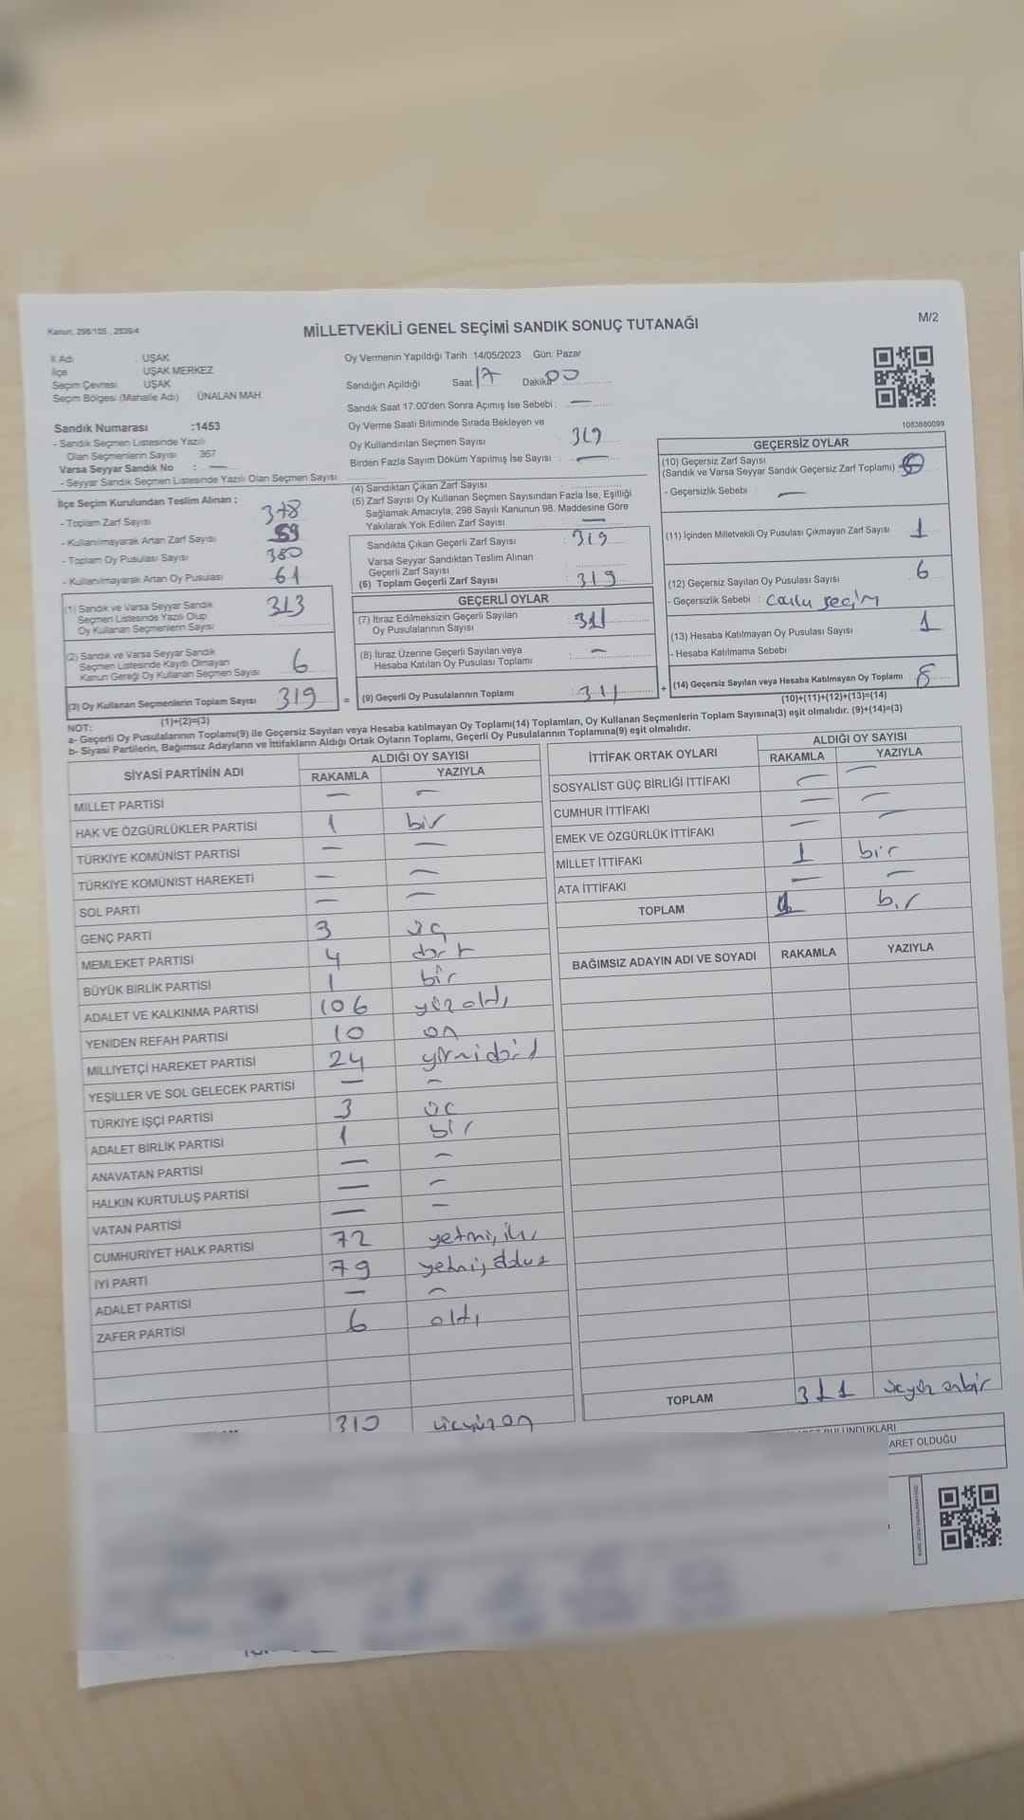 Kanun: 298/105, 2839/4
MİLLETVEKİLİ GENEL SEÇİMİ SANDIK SONUÇ TUTANAĞI
M/2
İl Adı : UŞAK
İlçe : UŞAK MERKEZ
Seçim Çevresi : UŞAK
Seçim Bölgesi (Mahalle Adı) : ÜNALAN MAH.
Sandık Numarası :1453
- Sandık Seçmen Listesinde Yazılı
Olan Seçmenlerin Sayısı : 367
Varsa Seyyar Sandık No : —
- Seyyar Sandık Seçmen Listesinde Yazılı Olan Seçmen Sayısı
İlçe Seçim Kurulundan Teslim Alınan :
- Toplam Zarf Sayısı 378
- Kullanılmayarak Artan Zarf Sayısı 59
- Toplam Oy Pusulası Sayısı 380
- Kullanılmayarak Artan Oy Pusulası 61
(1) Sandık ve Varsa Seyyar Sandık
Seçmen Listesinde Yazılı Olup
Oy Kullanan Seçmenlerin Sayısı 313
(2) Sandık ve Varsa Seyyar Sandık
Seçmen Listesinde Kayıtlı Olmayan
Kanun Gereği Oy Kullanan Seçmen Sayısı 6
(3) Oy Kullanan Seçmenlerin Toplam Sayısı 319
(1)+(2)=(3)
Oy Vermenin Yapıldığı Tarih :14/05/2023 Gün: Pazar
Sandığın Açıldığı Saat 17 Dakika 00
Sandık Saat 17:00'den Sonra Açımış İse Sebebi : —
Oy Verme Saati Bitiminde Sırada Bekleyen ve
Oy Kullandırılan Seçmen Sayısı
Birden Fazla Sayım Döküm Yapılmış İse Sayısı : —
(4) Sandıktan Çıkan Zarf Sayısı : 319
(5) Zarf Sayısı Oy Kullanan Seçmen Sayısından Fazla İse, Eşitliği
Sağlamak Amacıyla, 298 Sayılı Kanunun 98. Maddesine Göre
Yakılarak Yok Edilen Zarf Sayısı —
Sandıkta Çıkan Geçerli Zarf Sayısı : 319
Varsa Seyyar Sandıktan Teslim Alınan
Geçerli Zarf Sayısı
(6) Toplam Geçerli Zarf Sayısı : 319
GEÇERLİ OYLAR
(7) İtiraz Edilmeksizin Geçerli Sayılan
Oy Pusulalarının Sayısı : 311
(8) İtiraz Üzerine Geçerli Sayılan veya
Hesaba Katılan Oy Pusulası Toplamı : —
= (9) Geçerli Oy Pusulalarının Toplamı : 311 +
1083880099
GEÇERSİZ OYLAR
(10) Geçersiz Zarf Sayısı
(Sandık ve Varsa Seyyar Sandık Geçersiz Zarf Toplamı)
- Geçersizlik Sebebi : —
(11) İçinden Milletvekili Oy Pusulası Çıkmayan Zarf Sayısı 1
(12) Geçersiz Sayılan Oy Pusulası Sayısı 6
- Geçersizlik Sebebi : Çoklu seçim
(13) Hesaba Katılmayan Oy Pusulası Sayısı 1
- Hesaba Katılmama Sebebi
(14) Geçersiz Sayılan veya Hesaba Katılmayan Oy Toplamı 8
(10)+(11)+(12)+(13)=(14)
NOT:
a- Geçerli Oy Pusulalarının Toplamı(9) ile Geçersiz Sayılan veya Hesaba katılmayan Oy Toplamı(14) Toplamları, Oy Kullanan Seçmenlerin Toplam Sayısına(3) eşit olmalıdır. (9)+(14)=(3)
b- Siyasi Partilerin, Bağımsız Adayların ve İttifakların Aldığı Ortak Oyların Toplamı, Geçerli Oy Pusulalarının Toplamına(9) eşit olmalıdır.
SİYASİ PARTİNİN ADI ALDIĞI OY SAYISI
RAKAMLA YAZIYLA
MİLLET PARTİSİ — —
HAK VE ÖZGÜRLÜKLER PARTİSİ 1 bir
TÜRKİYE KOMÜNİST PARTİSİ — —
TÜRKİYE KOMÜNİST HAREKETİ — —
SOL PARTİ — —
GENÇ PARTİ 3 üç
MEMLEKET PARTİSİ 4 dört
BÜYÜK BİRLİK PARTİSİ 1 bir
ADALET VE KALKINMA PARTİSİ 106 yüzaltı
YENİDEN REFAH PARTİSİ 10 on
MİLLİYETÇİ HAREKET PARTİSİ 24 yirmidört
YEŞİLLER VE SOL GELECEK PARTİSİ — —
TÜRKİYE İŞÇİ PARTİSİ 3 üç
ADALET BİRLİK PARTİSİ 1 bir
ANAVATAN PARTİSİ — —
HALKIN KURTULUŞ PARTİSİ — —
VATAN PARTİSİ — —
CUMHURİYET HALK PARTİSİ 72 yetmiş iki
İYİ PARTİ 79 yetmiş dokuz
ADALET PARTİSİ — —
ZAFER PARTİSİ 6 altı
310 üçyüzon
İTTİFAK ORTAK OYLARI ALDIĞI OY SAYISI
RAKAMLA YAZIYLA
SOSYALİST GÜÇ BİRLİĞİ İTTİFAKI — —
CUMHUR İTTİFAKI — —
EMEK VE ÖZGÜRLÜK İTTİFAKI — —
MİLLET İTTİFAKI 1 bir
ATA İTTİFAKI — —
TOPLAM 1 bir
BAĞIMSIZ ADAYIN ADI VE SOYADI RAKAMLA YAZIYLA
TOPLAM 311 üçyüz onbir
BULUNDUKLARI
ARET OLDUĞU